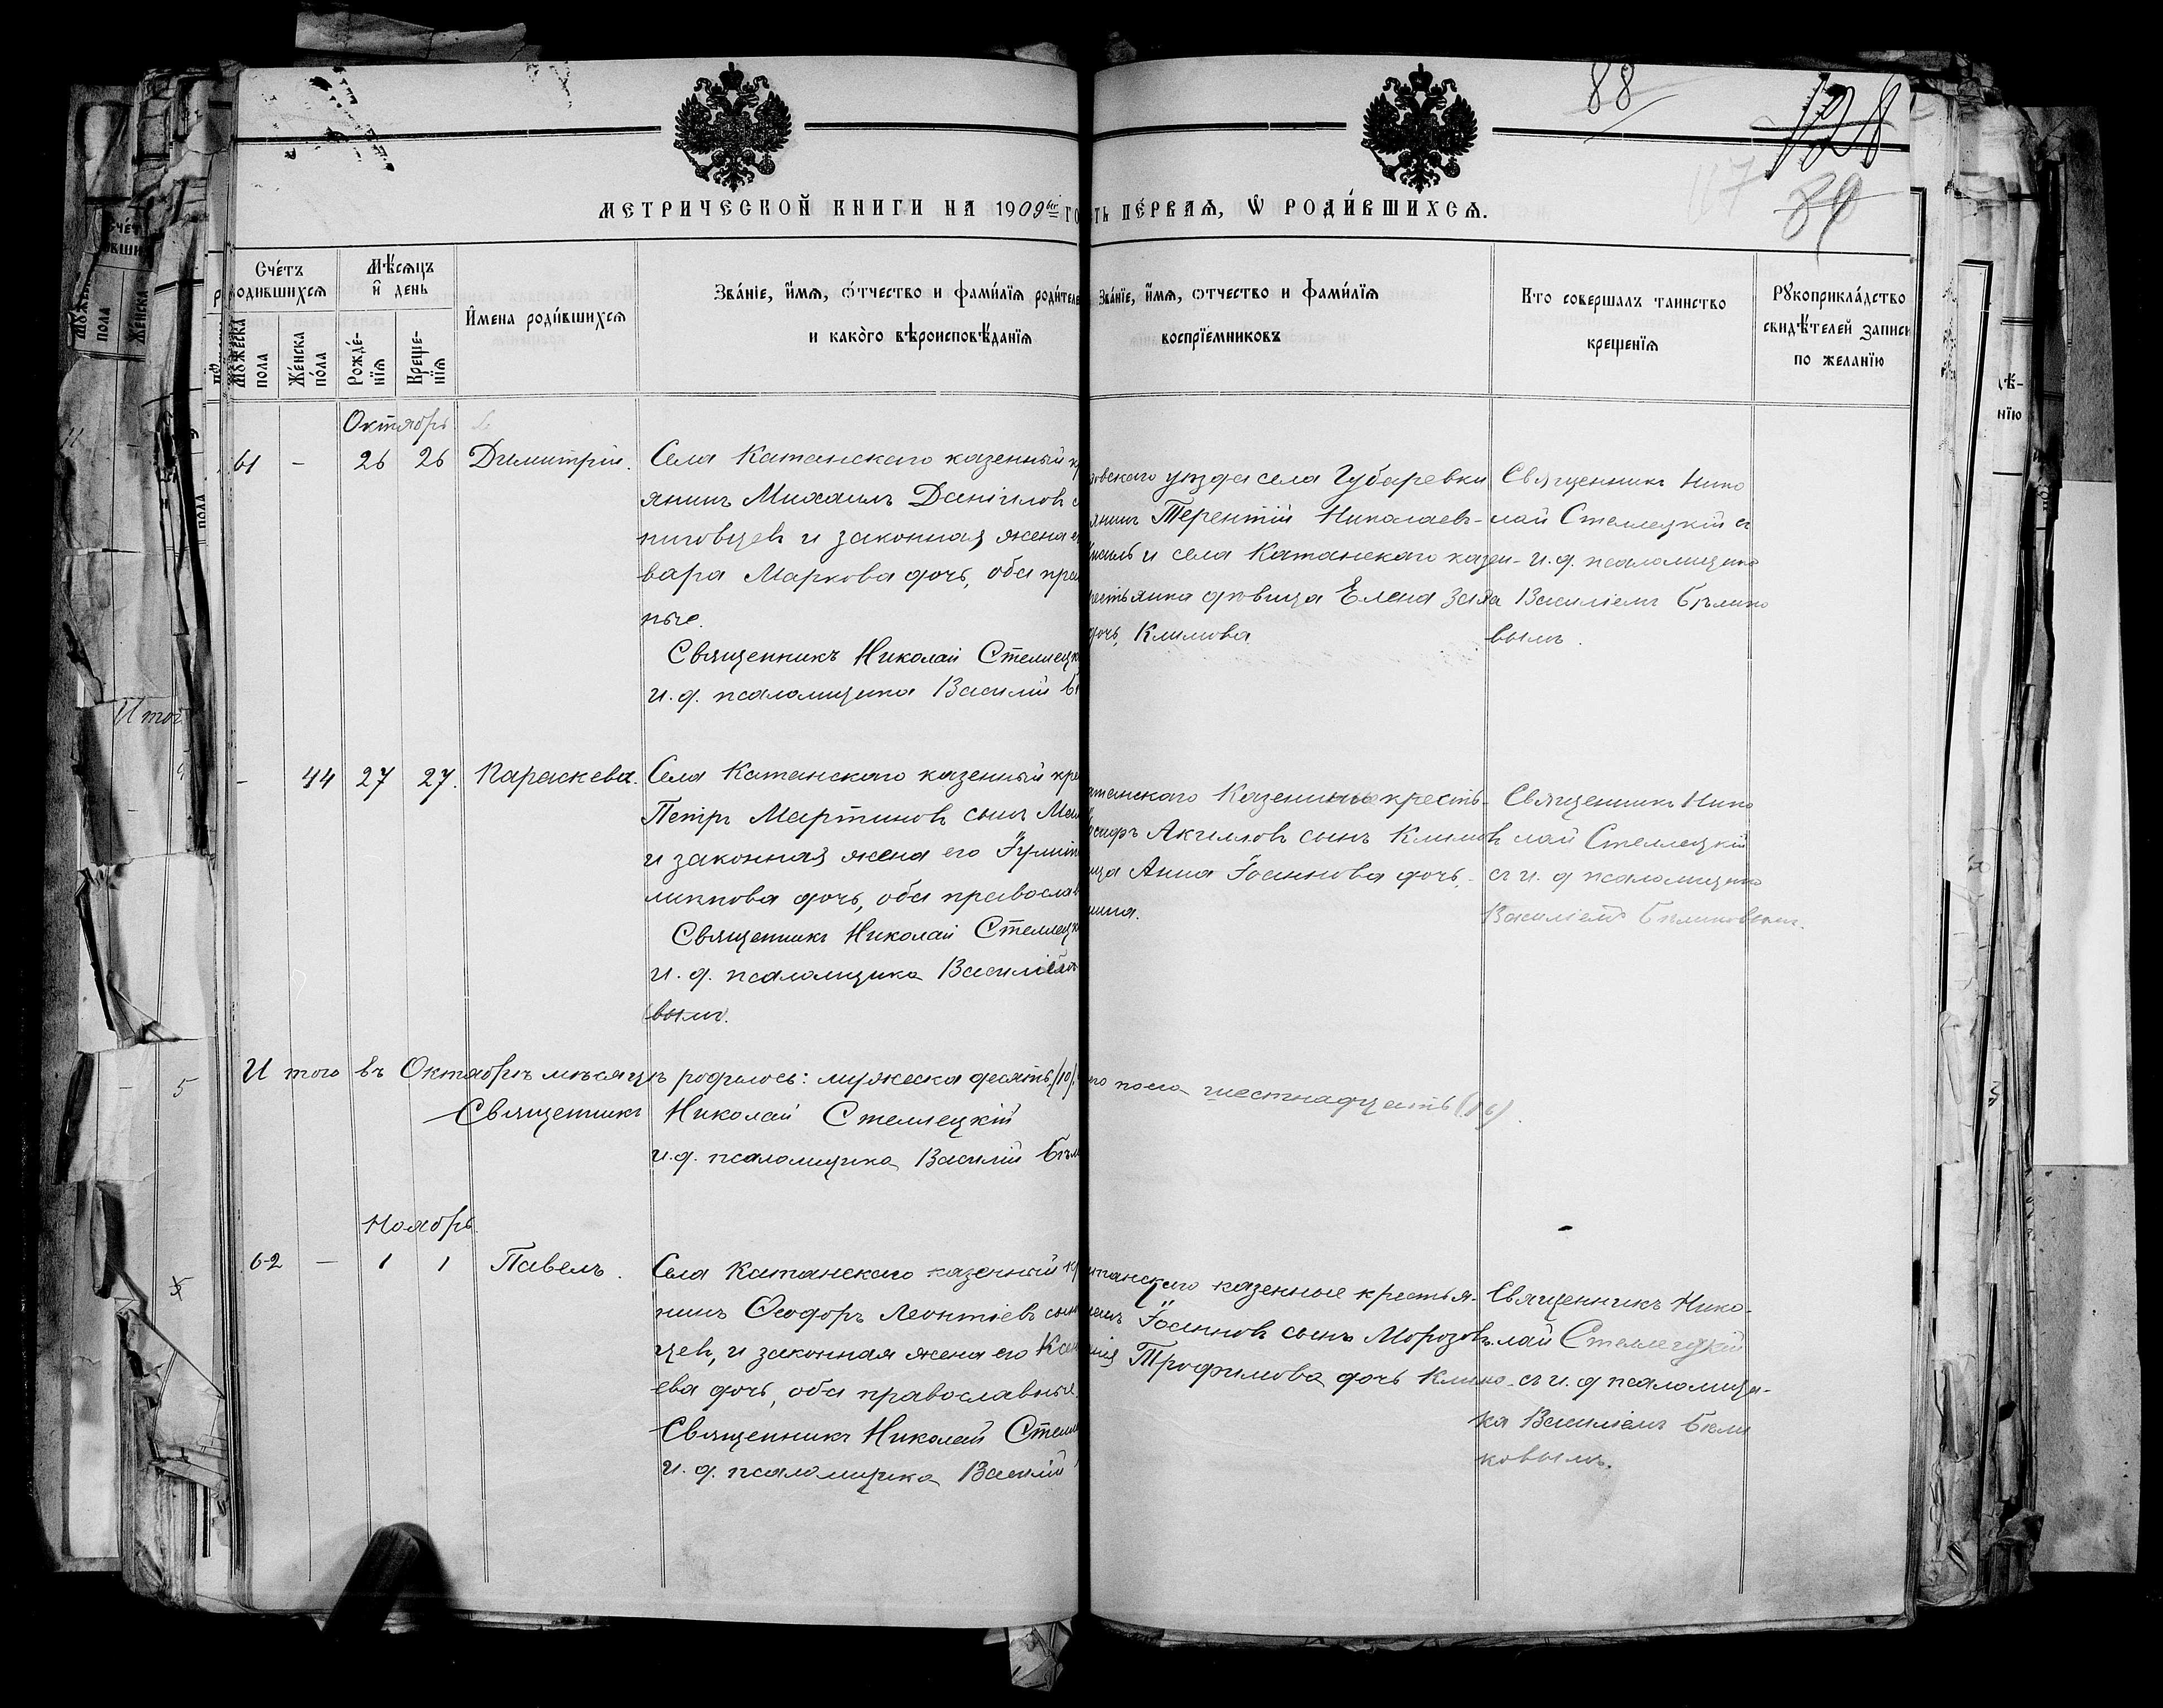 88
128
89
117
МЕТРИЧЕСКОЙ КНИГИ НА 1909ый ГО
ТЬ ПЕ́РВАѦ, Ѡ РОДИ́ВШИХСѦ.
Сче́тъ
родившихсѧ
Мꙋжеска
пола
Же́нска
по́ла
Мѣ́сѧцъ
и҆ день
Рожде́-
нїѧ
Креще-
нїѧ
И҆мена роди́вшихсѧ
Зва́нїе, и҆́мѧ, ѻ҆́тчество и фами́лїѧ роди́теле
и како́го вѣроисповѣ́данїѧ
Зва́нїе, и҆́мѧ, ѻтчество и фами́лїѧ
воспрїе́мниковъ
Кто совершалъ таинство
крещенїѧ
Рꙋкоприкла́дство
свидѣ́телей записи
по желанїю
Октябрь
61 - 26 26 Димитрій.
Села Катанскаго казенный кр
янинъ Михаилъ Даніиловъ с
ниговцевъ и законная жена е
вара Маркова дочь, оба прав
ные.
Священникъ Николай Стеллецк
и. д. псаломщика Василій Бѣ
овскаго уѣзда села Губаревки
янинъ Терентій Николаевъ
и села Катанскаго казен-
рестьянка дѣвица Елена
дочь Климова
Священникъ Нико
лай Стеллецкій съ
и. д. псаломщика
Василіемъ Бѣлико
вымъ.
- 44 27 27. Параскева.
Села Катанскаго казенный кре
Петръ Мартиновъ сынъ
и законная жена его Іулит
липпова дочь, оба православ
Священникъ Николай Стеллецк
и. д. псаломщика Василі
вымъ.
атанскаго казенные кресть-
осифъ Акиловъ сынъ Климовъ
ица Анна Іоаннова дочь
ина.
Священникъ Нико
лай Стеллецкій
съ и. д псаломщика
Василіемъ Бѣликовымъ.
Итого въ Октябрѣ мѣсяцѣ родилось: мужеска десять (10),
го пола шестнадцать (16).
Священникъ Николай Стеллецкій
и. д. псаломщика Василій Бѣл
Ноябрь.
62 — 1 1 Павелъ.
Села Катанскаго казенный кр
нинъ Ѳеодоръ Леонтіевъ сын
цевъ, и законная жена его Ксен
ева дочь, оба православные.
Священникъ Николай Стелл
и. д. псаломщика Василій
атанскаго казенные крестья-
Іоанновъ сынъ Морозовъ
Трофимова дочь Климо-
Священникъ Нико-
лай Стеллецкій
съ и. д псаломщи-
ка Василіемъ Бѣли
ковымъ.